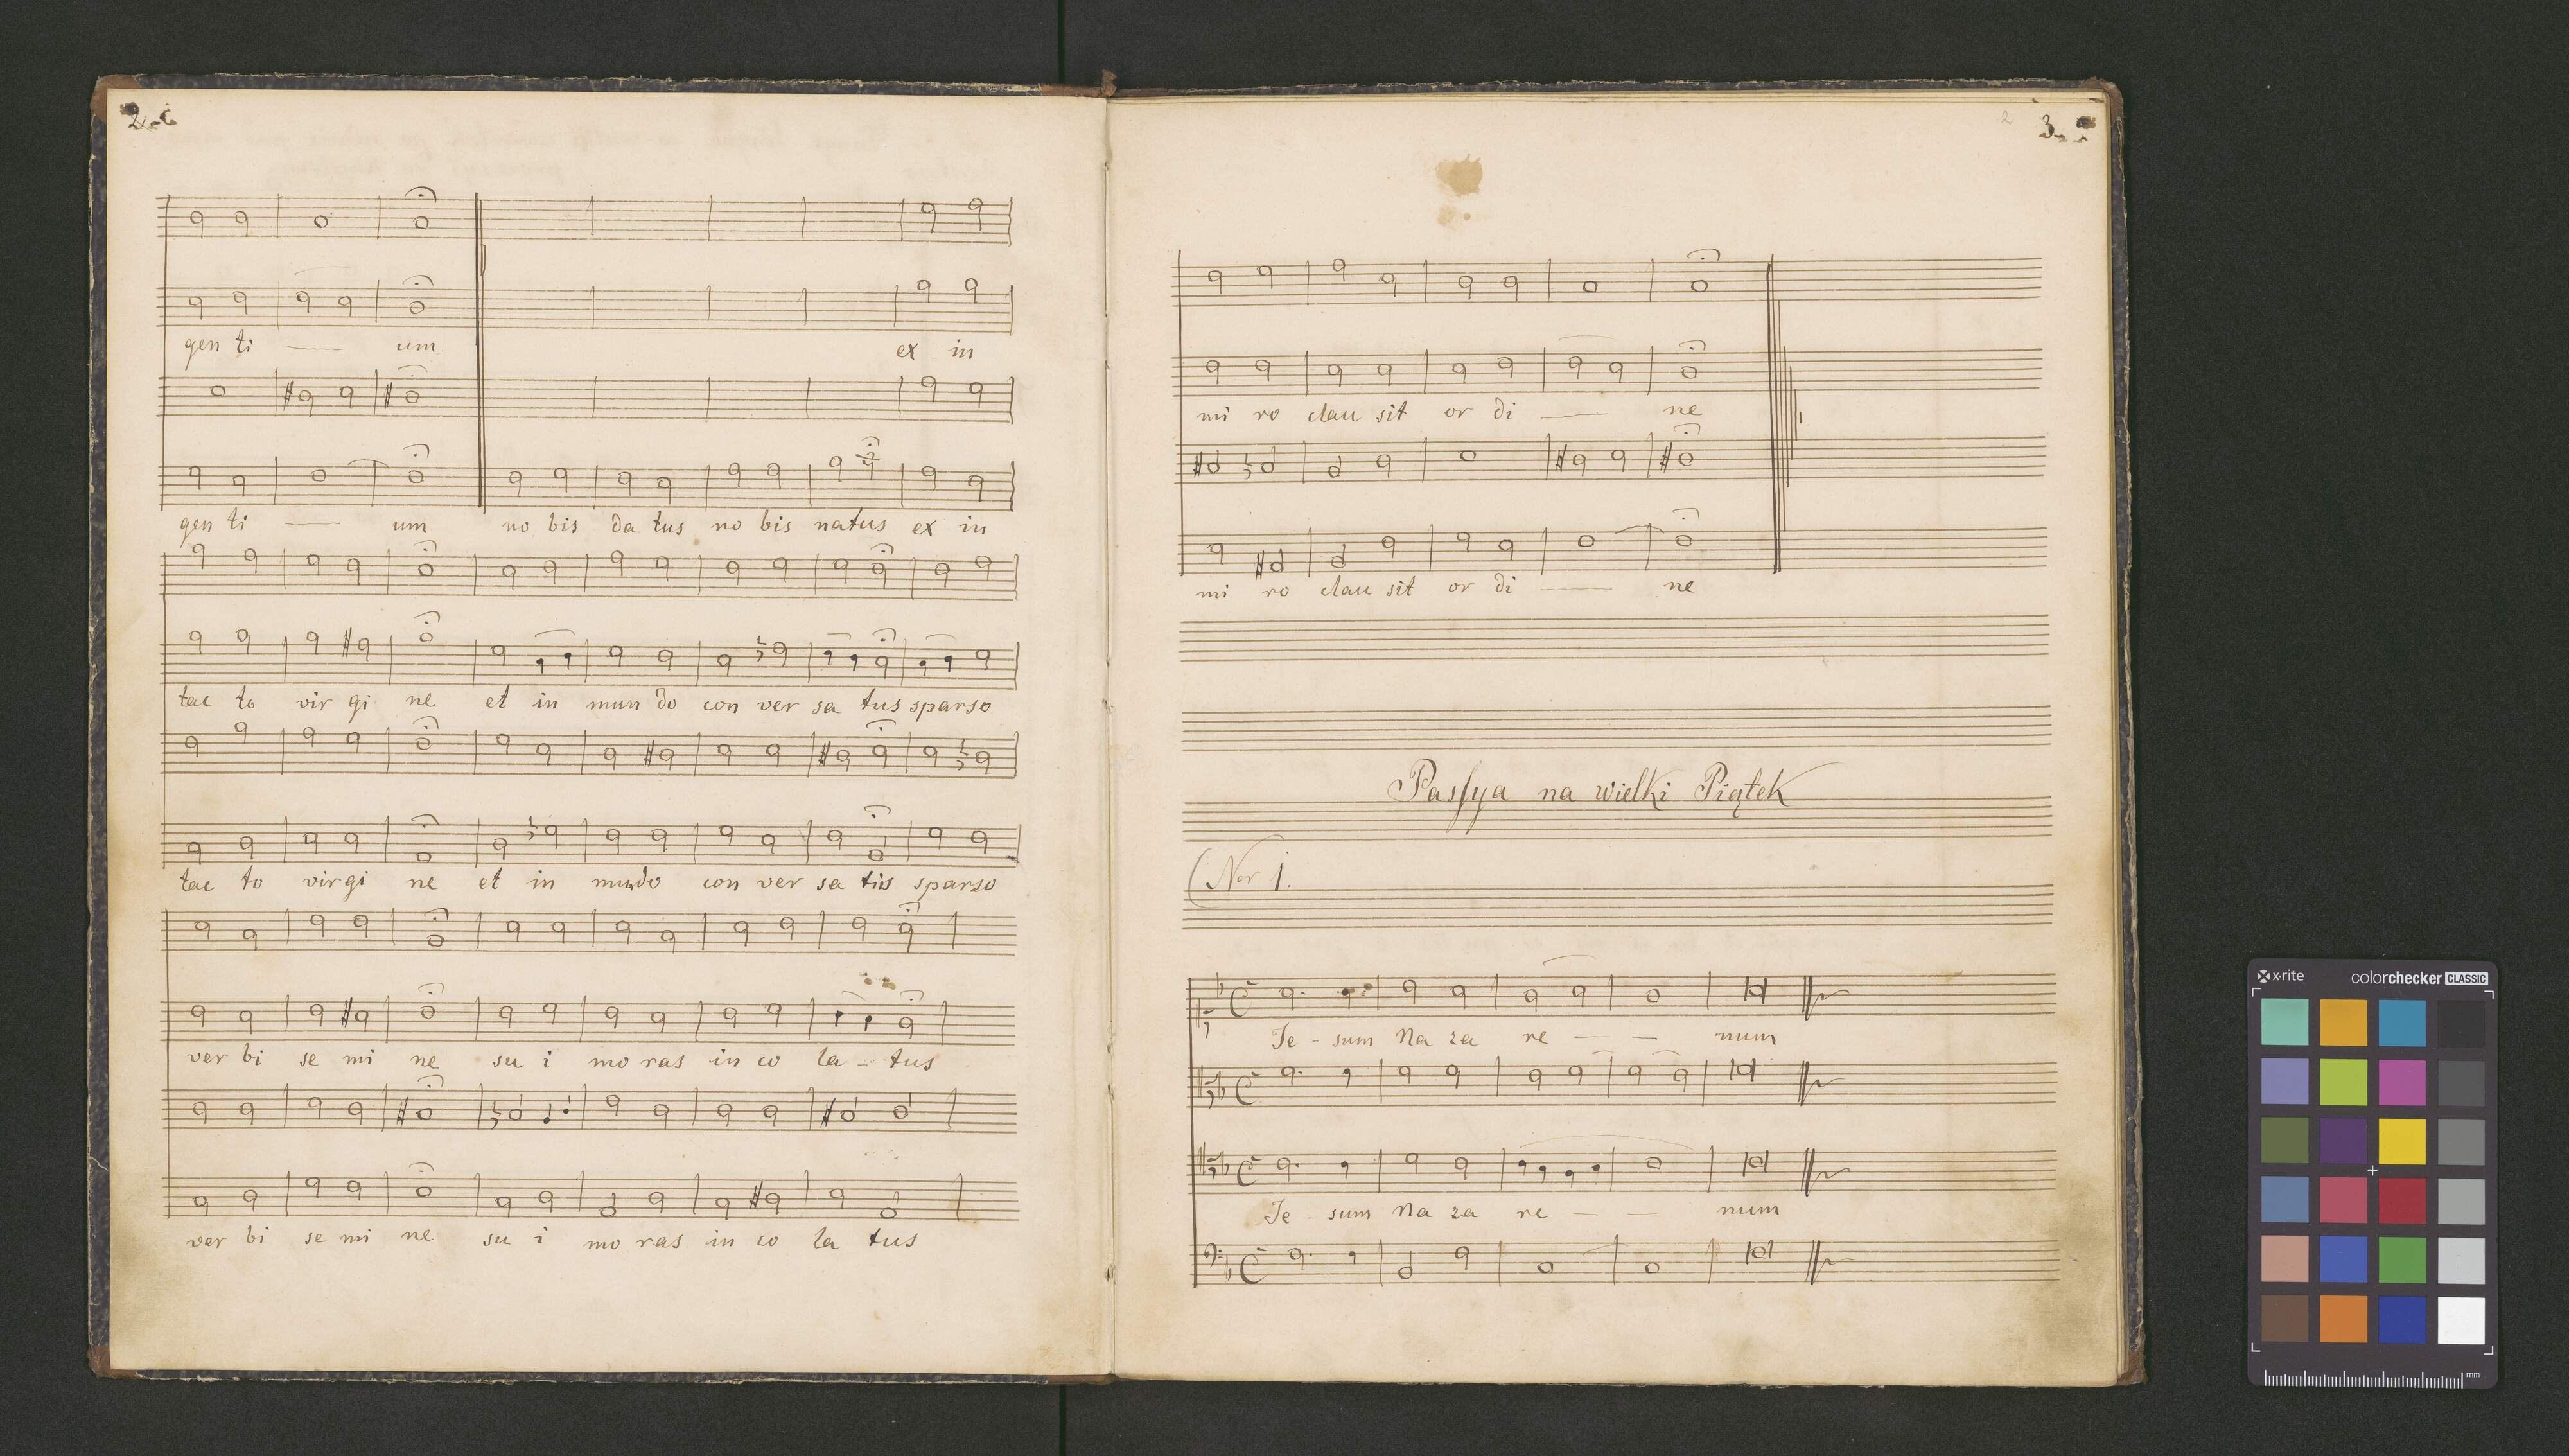 2.
gen ti — um ex in
gen ti — um no bis da tus no bis natus ex in
tac to vir gi ne et in mun do con ver sa tus sparso
tac to virgi ne et in mundo con ver sa tus sparso
ver bi se mi ne su i mo ras in co la - tus
ver bi se mi ne su i mo ras in co la tus
2 3.
mi ro clau sit or di — ne
mi ro clau sit or di — ne
Passya na wielki Piątek
Nor 1.
Je - sum Na za re — — num
Je - sum Na za re — — num
x-rite colorchecker CLASSIC
mm